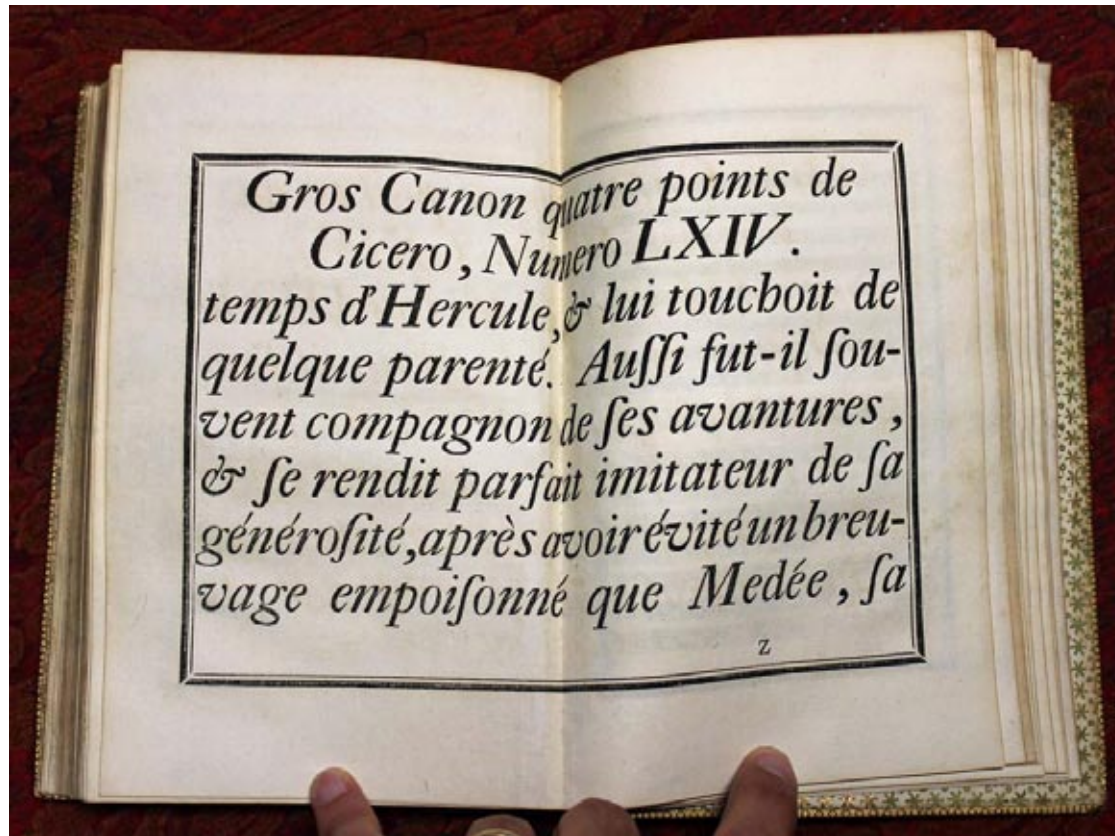 Gros Canon quatre points de
Cicero, Numero LXIV.
temps d'Hercule, & lui touchoit de
quelque parenté. Auſſi fut-il ſou-
vent compagnon de ſes avantures,
& ſe rendit parfait imitateur de ſa
généroſité, après avoir évité un breu-
vage empoiſonné que Medée, ſa
z